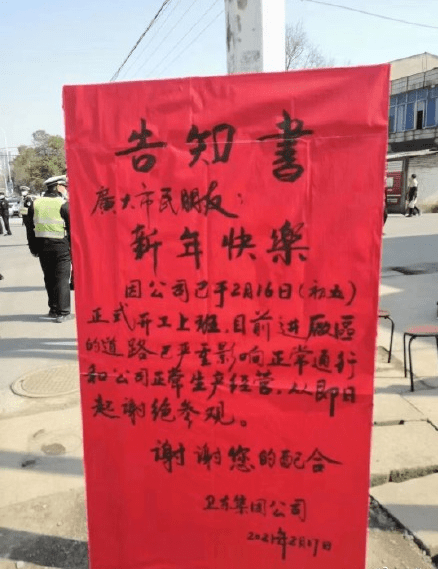 告知書
廣大市民朋友：
新年快樂
因公司已于2月16日（初五）
正式开工上班，目前进廠區
的道路已严重影响正常通行
和公司正常生产经营，从即日
起谢绝参观。
谢谢您的配合
卫东集团公司
2021年2月17日